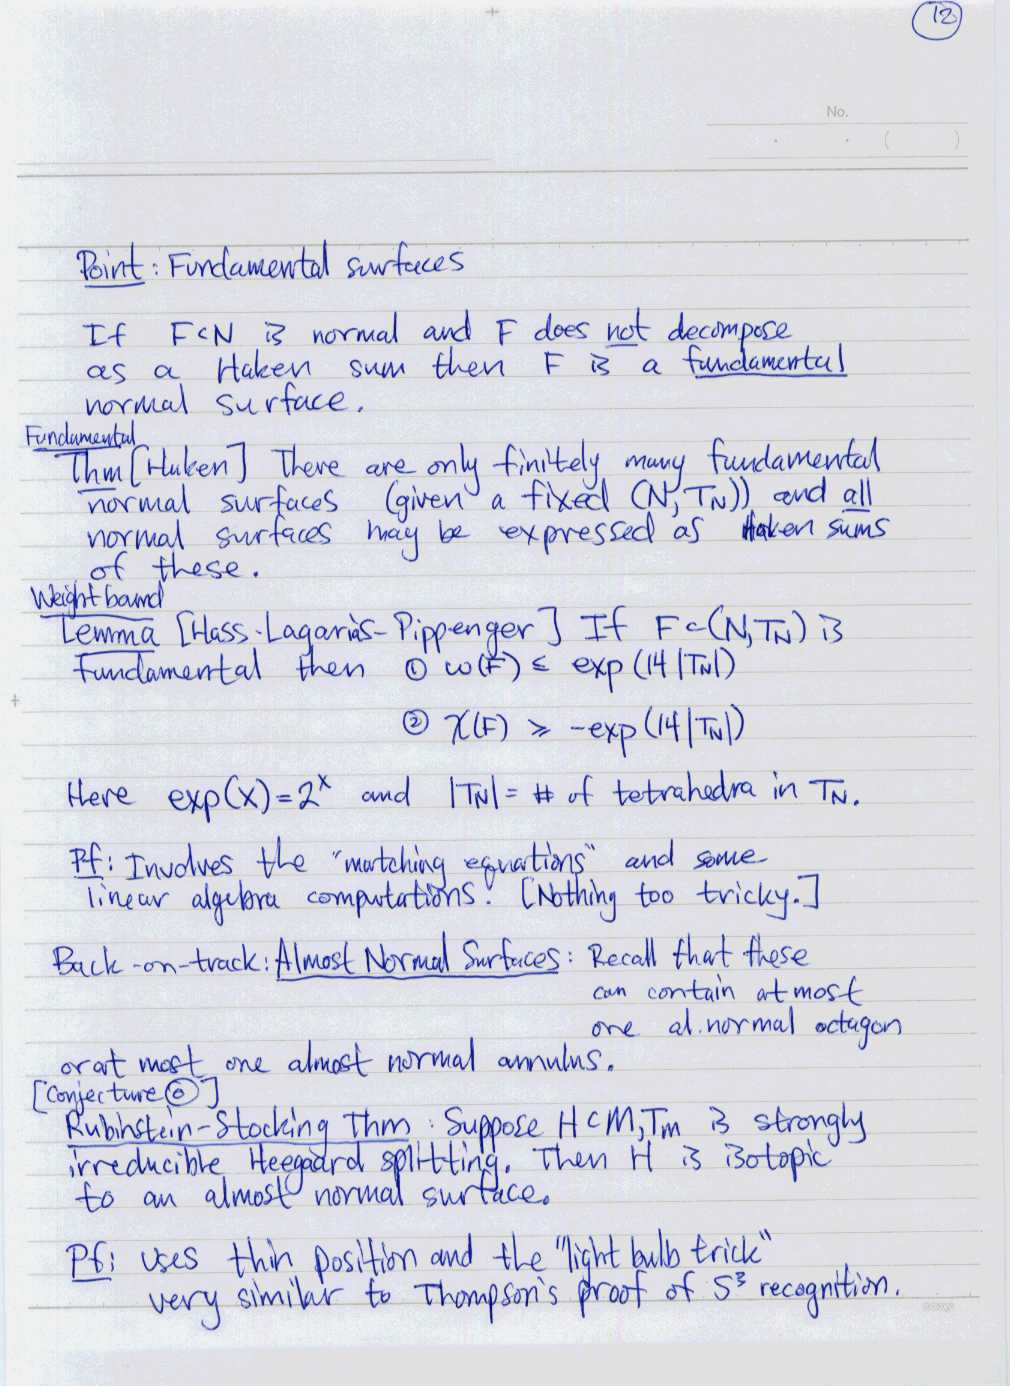 12
No.
. . ( )
Point: Fundamental surfaces
If F⊂N is normal and F does not decompose
as a Haken sum then F is a fundamental
normal surface.
Fundamental
Thm [Haken] There are only finitely many fundamental
normal surfaces (given a fixed (N, T_N)) and all
normal surfaces may be expressed as Haken sums
of these.
Weight bound
Lemma [Hass-Lagarias-Pippenger] If F⊂(N,T_N) is
fundamental then ① ω(F) ≤ exp(14|T_N|)
② χ(F) ≥ -exp(14|T_N|)
Here exp(x)=2^x and |T_N| = # of tetrahedra in T_N.
Pf: Involves the "matching equations" and some
linear algebra computations. [Nothing too tricky.]
Back-on-track: Almost Normal Surfaces: Recall that these
can contain at most
one al. normal octagon
or at most one almost normal annulus.
[Conjecture ⓪]
Rubinstein-Stocking Thm: Suppose H⊂M,T_M is strongly
irreducible Heegaard splitting. Then H is isotopic
to an almost normal surface.
Pf: Uses thin position and the "light bulb trick"
very similar to Thompson's proof of S³ recognition.